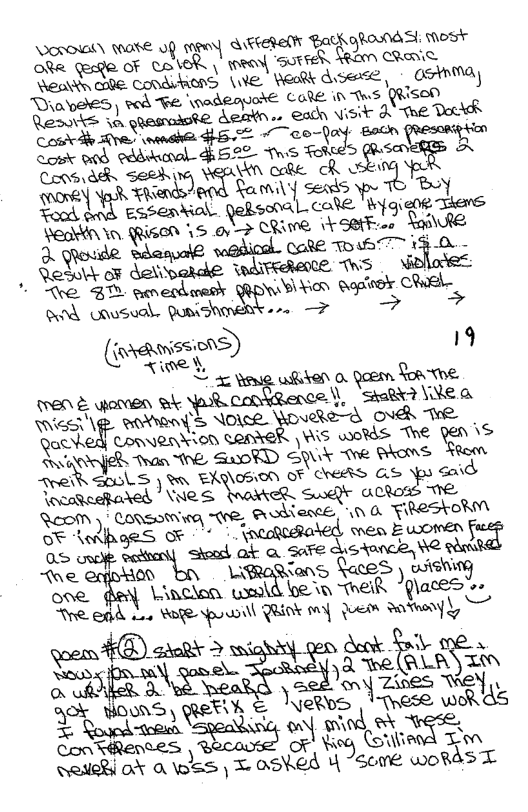 Donovan make up many different Backgrounds!. most
are people of color, many suffer from cronic
Health care conditions like Heart disease, asthma,
Diabetes, And The inadequate care in This prison
Results in premature death.. each visit 2 The Doctor
Cost $ The inmate $5.00 co-pay Each prescription
cost And Additional $5.00 This forces prisoners 2
Consider seeking Health care or useing your
money your Friends And family sends you TO Buy
Food And Essential personal care Hygiene Items
Health in prison is a → crime itself... failure
2 provide adequate medical care To us is a
Result of deliberate indifference This violates
The 8th Amendment prohibition Against Cruel
And unusual punishment... → → →
19
(intermissions)
Time!!
I Have writen a poem for The
men & women At your conference!! start→ like a
missile Anthony's voice Hovere-d over The
packed convention center, His words The pen is
mightyer Than The sword split The Atoms from
Their souls, An Explosion of cheers as you said
incarcerated lives matter swept across The
Room, consuming The Audience in a Firestorm
OF images of incarcerated men & women Faces
as uncle Anthony stood at a safe distance, He Admired
The emotion on Librarians faces, wishing
one day Linclon would be in Their places..
The end... Hope you will print my poem Anthony!
poem #② start → mighty pen dont fail me
Now, on my panel Journey, 2 The (A.L.A) Im
a writer 2 be heard, see my Zines They
got Nouns, prefix & verbs, These words
I found Them speaking my mind At These
conferences, Because of King Gilliand I'm
never at a loss, I asked 4 some words I